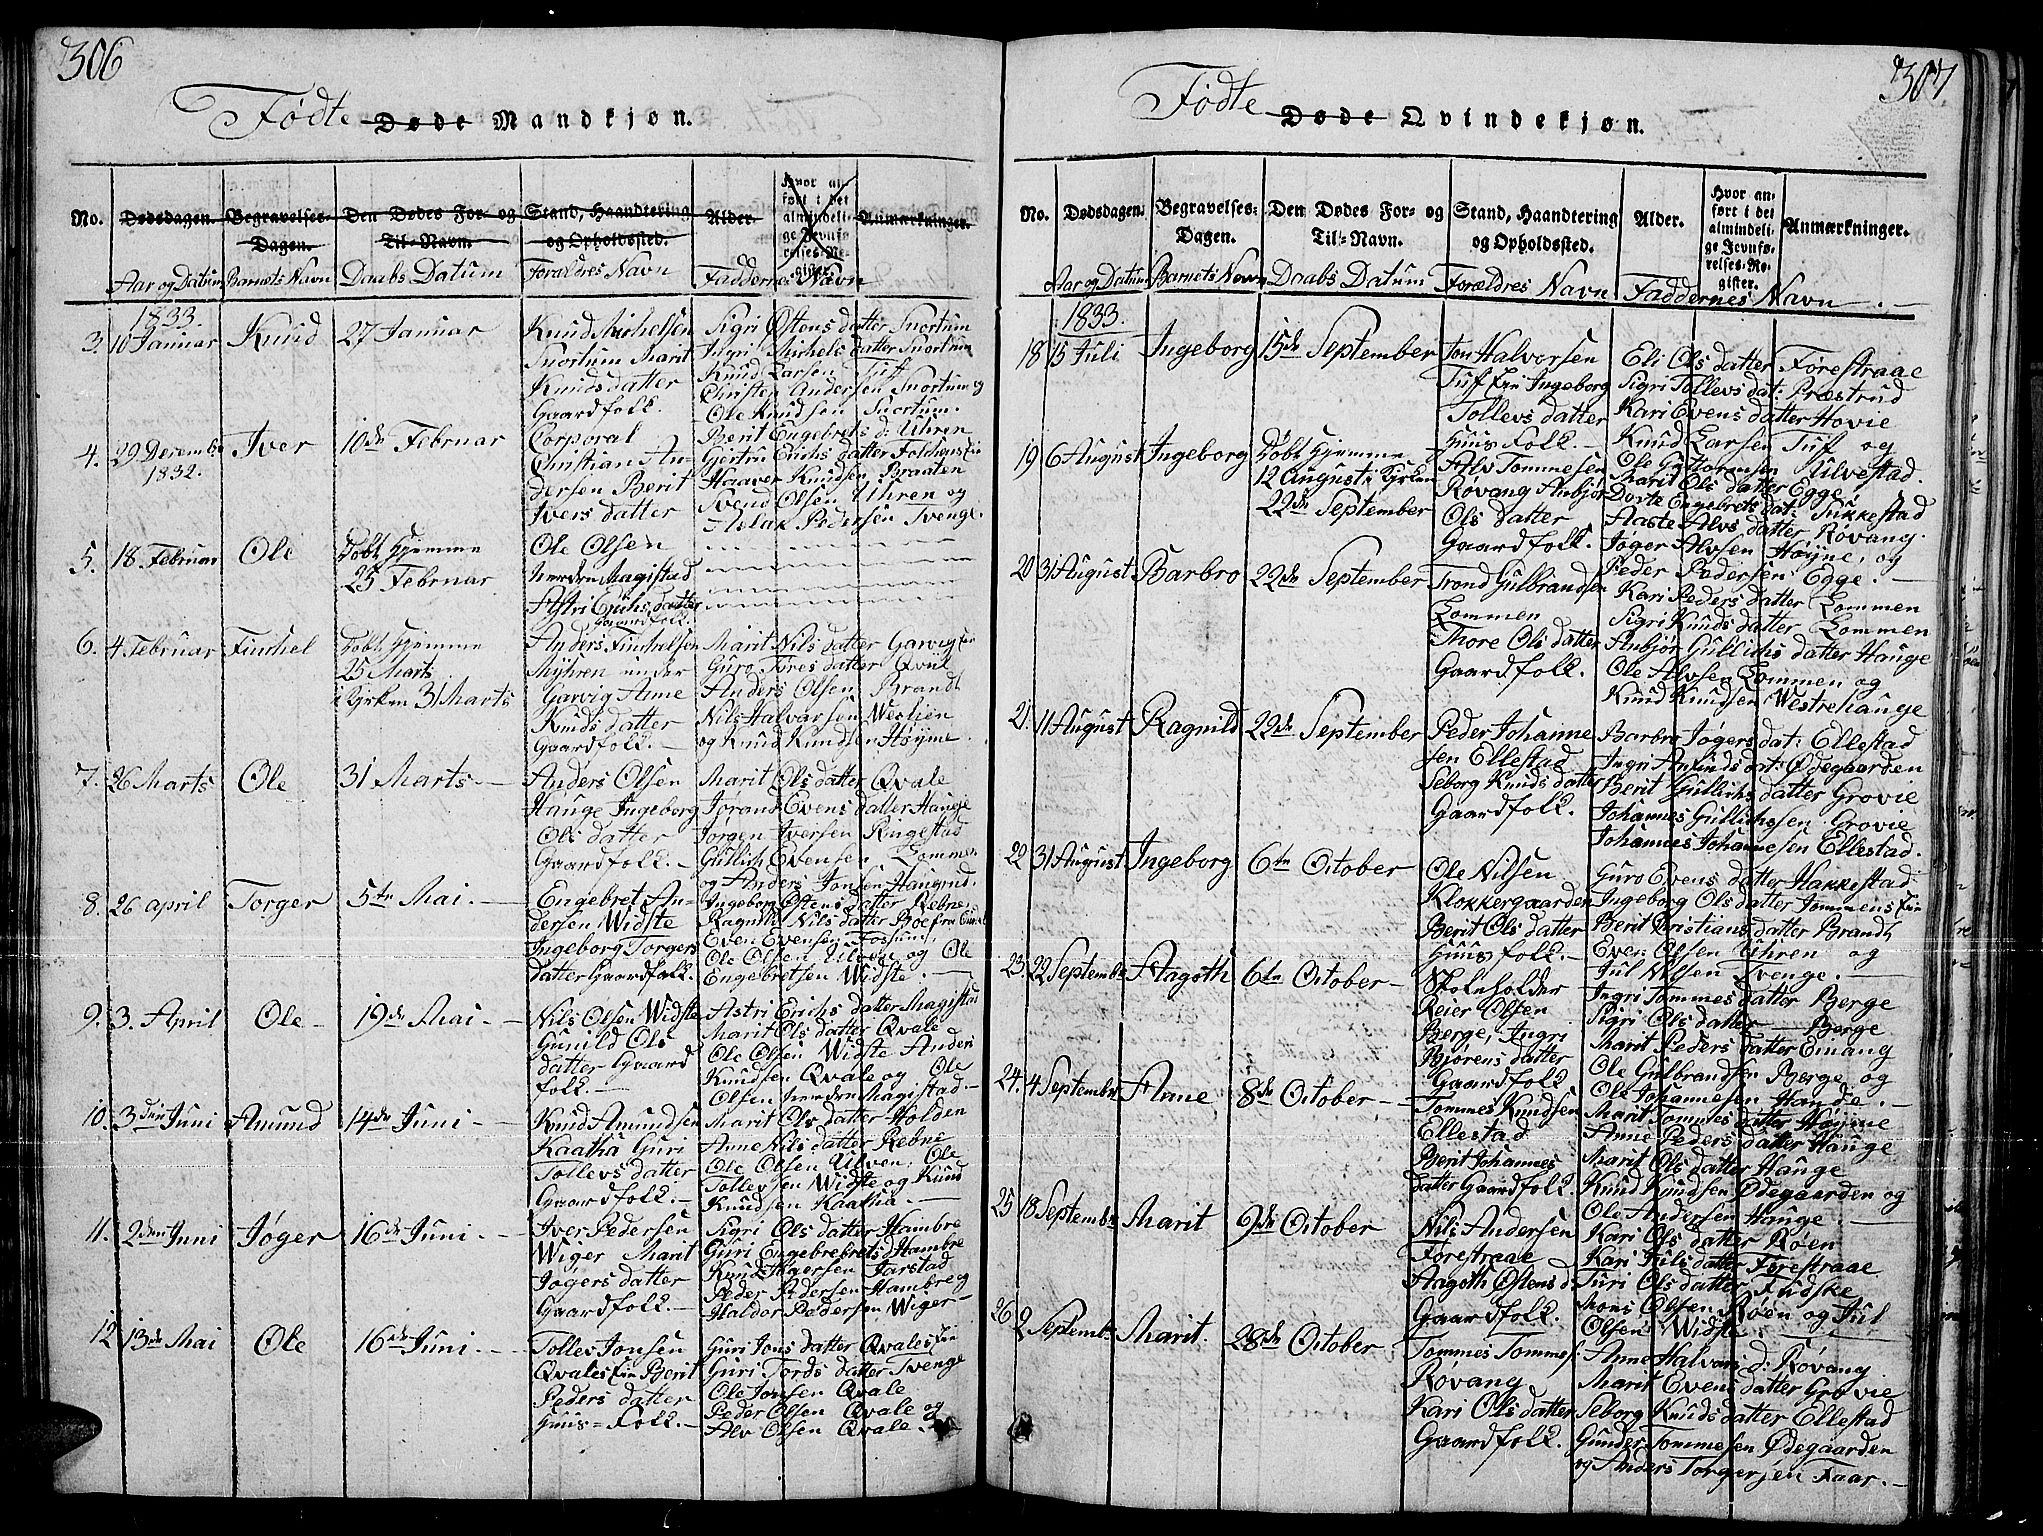 306
Födte Døde Mandkjøn.
No. Dødsdagen. Begravelses-Dagen. Den Dødes For- og Til-Navn. Stand, Haandtering og Opholdssted. Alder. Hvor anført i det almindelige Jevnførelses-Register. Anmærkninger.
Aar og Datum Barnets Navn Daabs Datum Forældres Navn Faddernes Navn
1833.
3. 10 Januar Knud 27 Januar
Knud Michelsen
Snortum Marit
Knudsdatter
Gaardfolk.
Sigri Østens datter Snortum
Ingri Michels datter Snortum
Knud Larsen Tuff
Christen Andersen Snortum og
Ole Knudsen Snortum.
4. 29 Decembr 1832. Iver 10de Februar
Corporal
Christian An-
dersen Berit
Ivers datter
Berit Engebrets d: Uhren
Gertru Erichs datter
Haaver Knudsen Braaten
Svend Olsen Uhren og
Aslak Pedersen Tvenge.
5. 18. Februar Ole Döbt Hjemme
25 Februar
Ole Olsen
Magistad
Astri Erichs datter
Gaardfolk.
6. 4 Februar Finchel Döbt Hjemme
25 Marts
i Kirken 31 Marts
Anders Finchelsen
Myhren under
Garvig Anne
Knuds datter
Gaardfolk. —
Marit Nils datter Garvig
Guro Tores datter Qvil
Anders Olsen Brandt
Nils Halvorsen Westien
og Knud Knudsen Høyne.
7. 26 Marts Ole 31 Marts —
Anders Olsen
Hauge Ingeborg
Ols datter
Gaardfolk. —
Marit Ols datter Qvale
Jorand Evens datter Hauge
Jorgen Iversen Ringestad
Gullich Evensen Lommen
og Anders Jonsen Haugrud.
8. 26 april Torger 5te Mai. —
Engebret An-
dersen Widste
Ingeborg Torgers
datter Gaardfolk.
Ingeborg Østens datter Rebne,
Ragnild Nils datter Boe
Even Evensen Fossum,
Ole Olsen Ulven og Ole
Engebretsen Widste. —
9. 3. April Ole — 19de Mai. —
Nils Olsen Widste
Gunild Ols
datter Gaard
folk. —
Astri Erichs datter Magistad
Marit Ols datter Qvale
Ole Olsen Widste Anders
Knudsen Qvale og Ole
Olsen Magistad —
10. 3den Juni Amund 14de Juni. —
Knud Amundsen
Kaatha Guri
Tollevs datter
Gaardfolk. —
Marit Ols datter Holden
Anne Nils datter Rebne
Ole Olsen Ulven, Ole
Tollevsen Widste og Knud
Knudsen Kaatha. —
11. 2den Juni Jøger 16de Juni. —
Iver Pedersen
Wiger Marit
Jøgers datter
Gaardfolk. —
Sigri Ols datter Hambre
Guri Engebrebrets d Hambre
Knud Jøgersen Jarstad
Peder Pedersen Hambre og
Haldor Pedersen Wiger —
12 13de Mai Ole 16de Juni. —
Tollev Jonsen
Qvales Eie Berit
Peders datter
Huus = Folk. —
Guri Jons datter Qvales Eie
Guri Tords datter Tvenge
Ole Jonsen Qvale
Peder Olsen Qvale og
Alv Olsen Qvale. —
307
Födte Døde Qvindekjøn.
No. Dødsdagen. Begravelses-Dagen. Den Dødes For- og Til-Navn. Stand, Haandtering og Opholdssted. Alder. Hvor anført i det almindelige Jevnførelses-Register. Anmærkninger.
Aar og Datum Barnets Navn Daabs Datum Forældres Navn Faddernes Navn. —
1833.
18 15 Juli Ingeborg 15de September
Jon Halvorsen
Tuf Eie Ingeborg
Tollevs datter
Huus Folk. —
Eli Ols datter Førestraae
Sigri Tollevs dat: Præstrud
Kari Evens datter Hovie
Knud Larsen Tuf og
Ole Guttormsen Ulvestad.
19 6 August Ingeborg Döbt Hjemme
12 August i Kirken
22de September
Alv Tommesen
Røvang Anbjør
Ols datter
Gaardfolk.
Marit Ols datter Egge
Dorte Engebrets dat: Tukkestad
Aaste Alvs datter Røvang.
Jøger Alvsen Høyne, og
Peder Pedersen Egge. —
20 31 August Barbro 22de September
Trond Gulbrandsen
Lommen
Thore Ols datter
Gaardfolk.
Kari Peders datter Lommen
Sigri Knuds datter Lommen
Anbjør Gullichs datter Hauge
Ole Alvsen Lommen og
Knud Knudsen Westrehauge
21. 11 August Ragnild 22de September
Peder Johanne
sen Ellestad
Seborg Knuds datter
Gaardfolk.
Barbro Jøgers dat: Ellestad
Ingri Amunds dat: Ødegaarden
Berit Gullichs datter Grovie
Johannes Gullichsen Grovie
Johannes Johannesen Ellestad.
22 31 August Ingeborg 6te October
Ole Nilsen
Klokkergaarden
Berit Ols datter
Huus folk. —
Guro Evens datter Hakkestad
Ingeborg Ols datter
Berit Christians datter Brandt
Even Olsen Uhren og
Jul Nilsen Tvenge. —
23. 22 Septembr Aagoth 6te October —
Skoleholder
Reier Olsen
Berge, Ingri
Bjørens datter
Gaardfolk
Ingri Tommes datter Berge
Sigri Ols datter — Berge
Marit Peders datter Emang
Ole Gulbrandsen Berge og
Ole Johannesen Hande. —
24. 4 Septembr Anne 8de October —
Tommes Knudsen
Ellestad
Berit Johannes
datter Gaardfolk.
Marit Tommes datter Høyne
Anne Peders datter Hauge
Marit Ols datter Hauge
Knud Knudsen Ødegaarden og
Ole Andersen Hauge. —
25 18 Septembr Marit 9de October
Nils Andersen
Forestraae
Aagoth Østens d
Gaardfolk.
Kari Ols datter Røen
Kari Juls datter Førestraae
Turi Ols datter Fudske
Mons Olsen Røen og Jul
Olsen Widste. —
26. 2 Septembr Marit. 28de October
Tommes Tommes
Røvang
Kari Ols datter
Gaardfolk.
Anne Halvors d: Røvang
Marit Evens datter Grovie
Seborg Knuds datter Ellestad
Gunder Tommesen Ødegaarden
og Anders Torgersen Faar. —